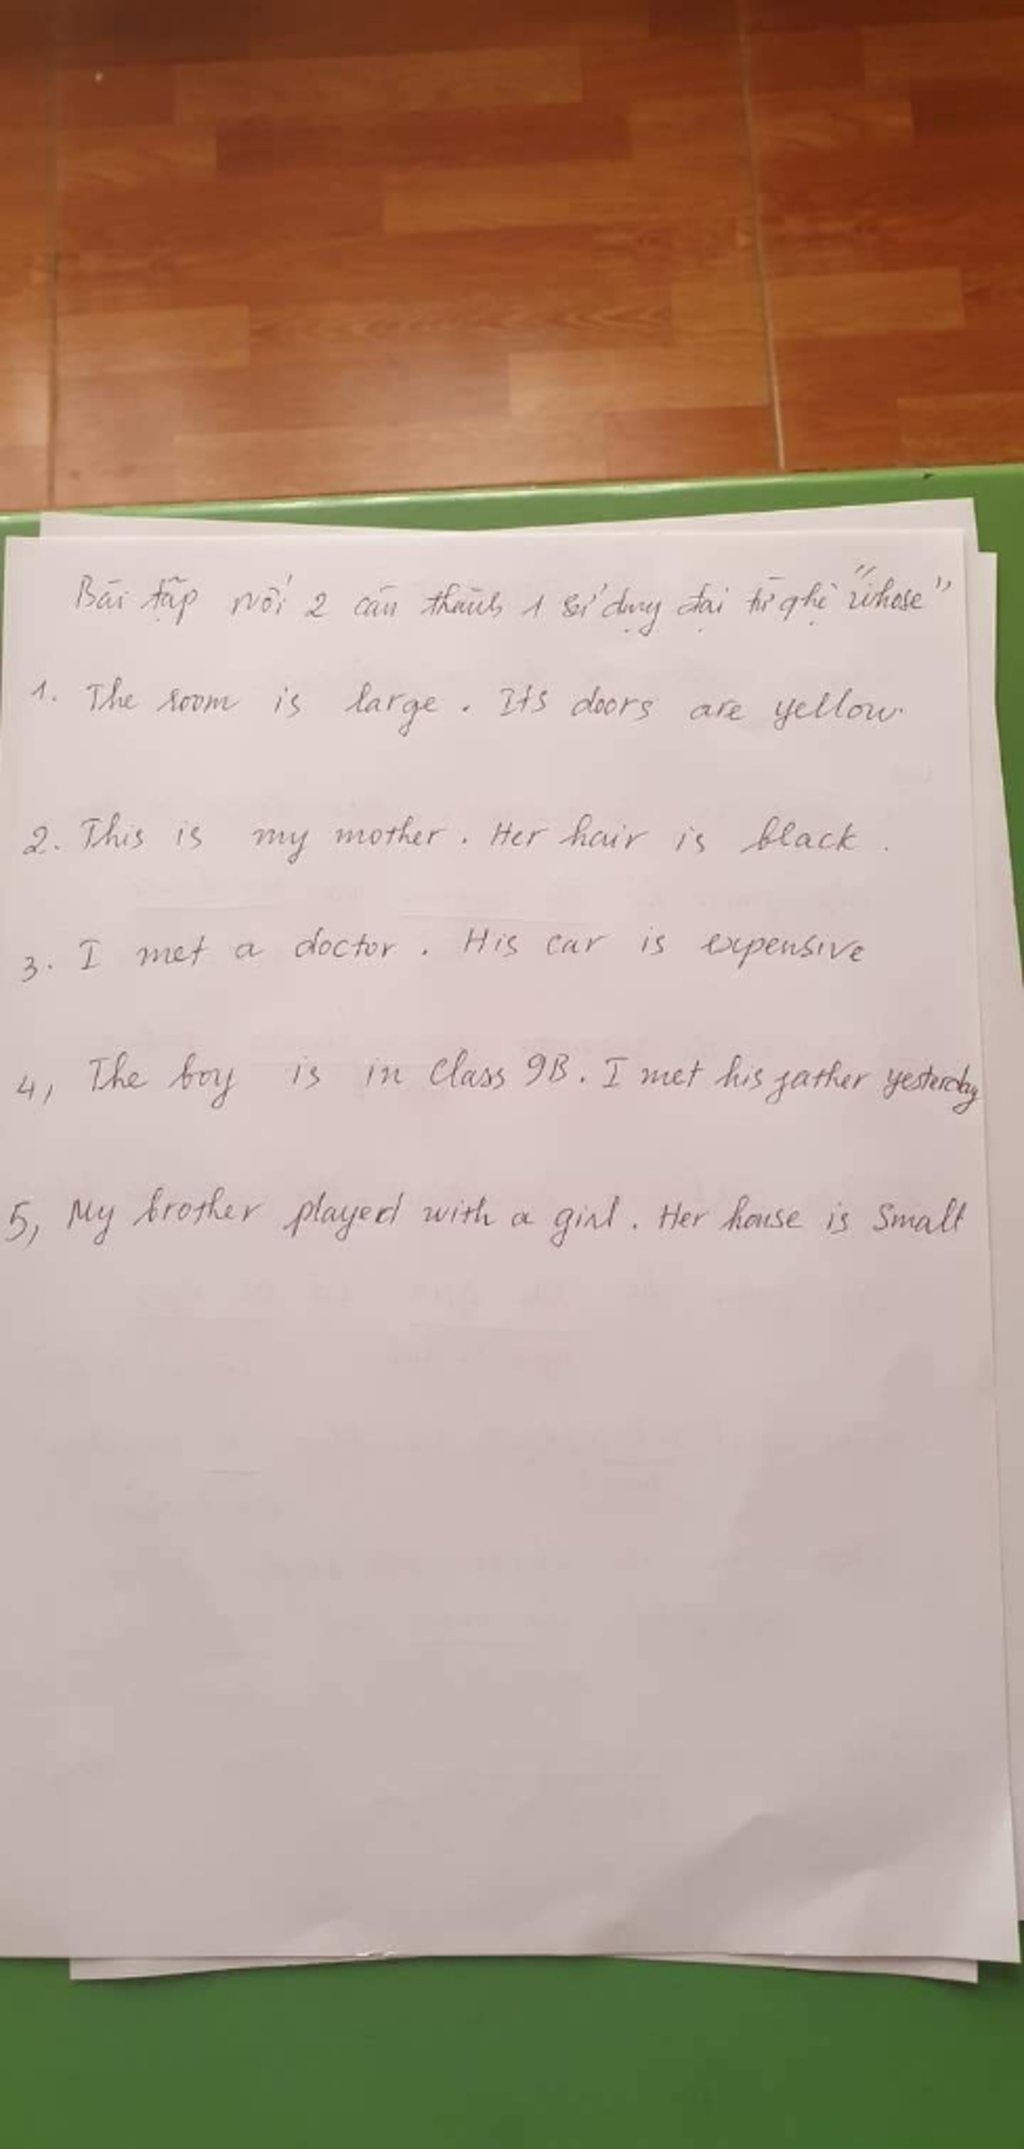 Bài tập nối 2 câu thành 1 sử dụng đại từ qhệ "whose"
1. The room is large. Its doors are yellow.
2. This is my mother. Her hair is black.
3. I met a doctor. His car is expensive
4, The boy is in class 9B. I met his father yesterday
5, My brother played with a girl. Her house is small